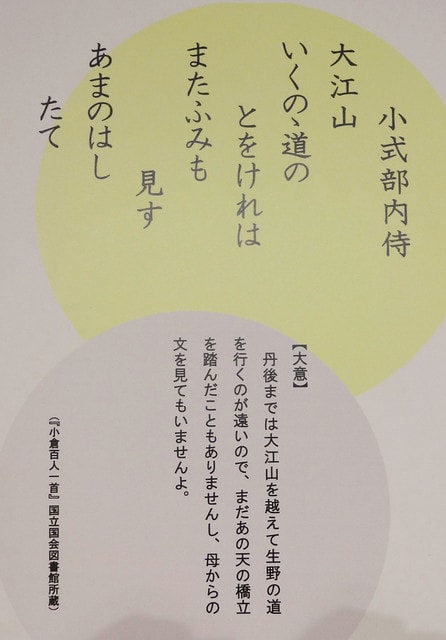 小式部内侍
大江山
いくのゝ道の
とをけれは
またふみも
見す
あまのはし
たて
【大意】
丹後までは大江山を越えて生野の道
を行くのが遠いので、まだあの天の橋立
を踏んだこともありませんし、母からの
文を見てもいませんよ。
（『小倉百人一首』国立国会図書館所蔵）